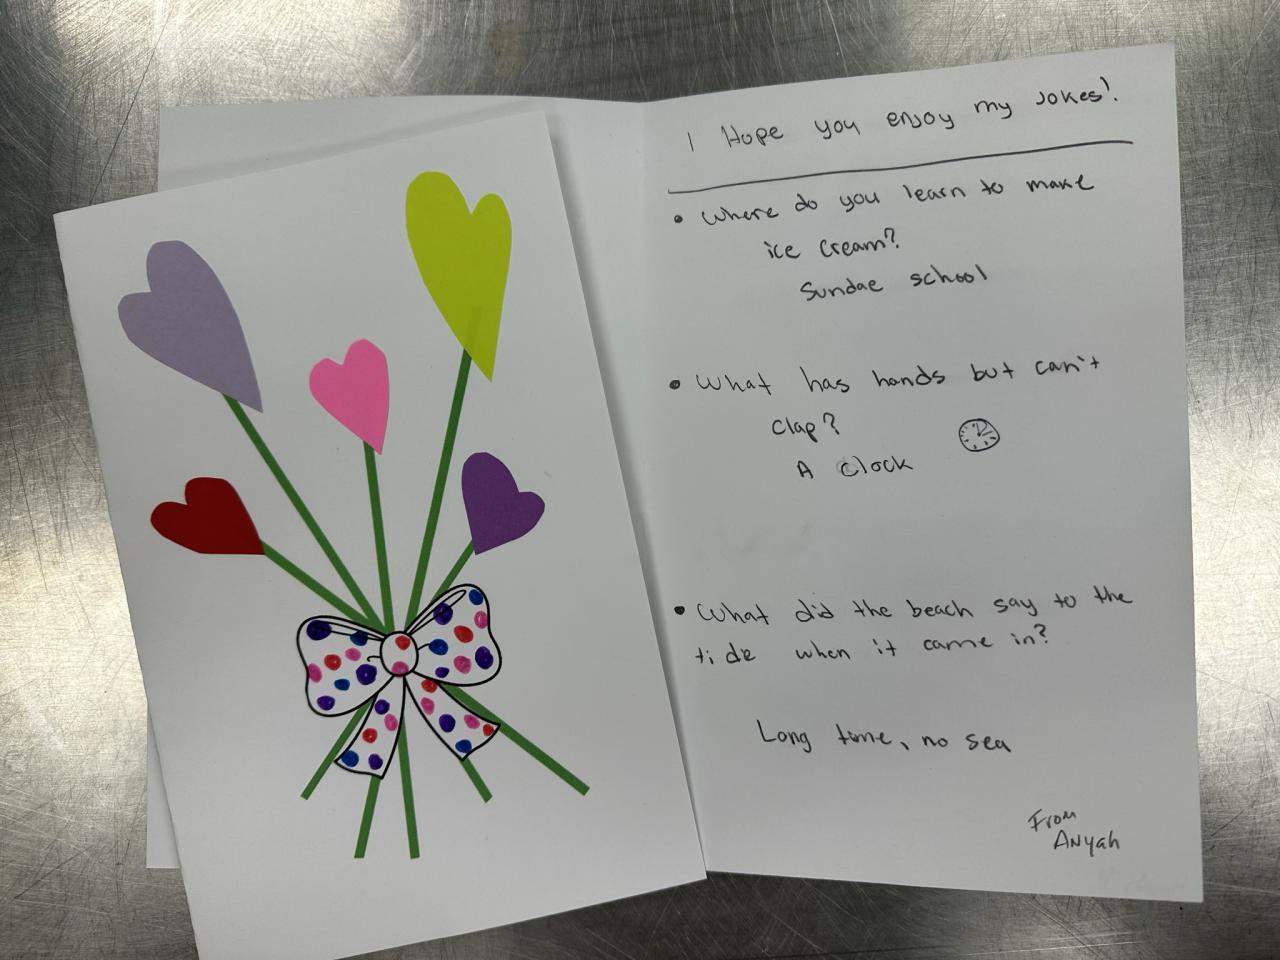 I Hope you enjoy my Jokes!
• Where do you learn to make
ice cream?
Sundae school
• What has hands but can't
clap?
A clock
• What did the beach say to the
tide when it came in?
Long time, no sea
From
Anyah